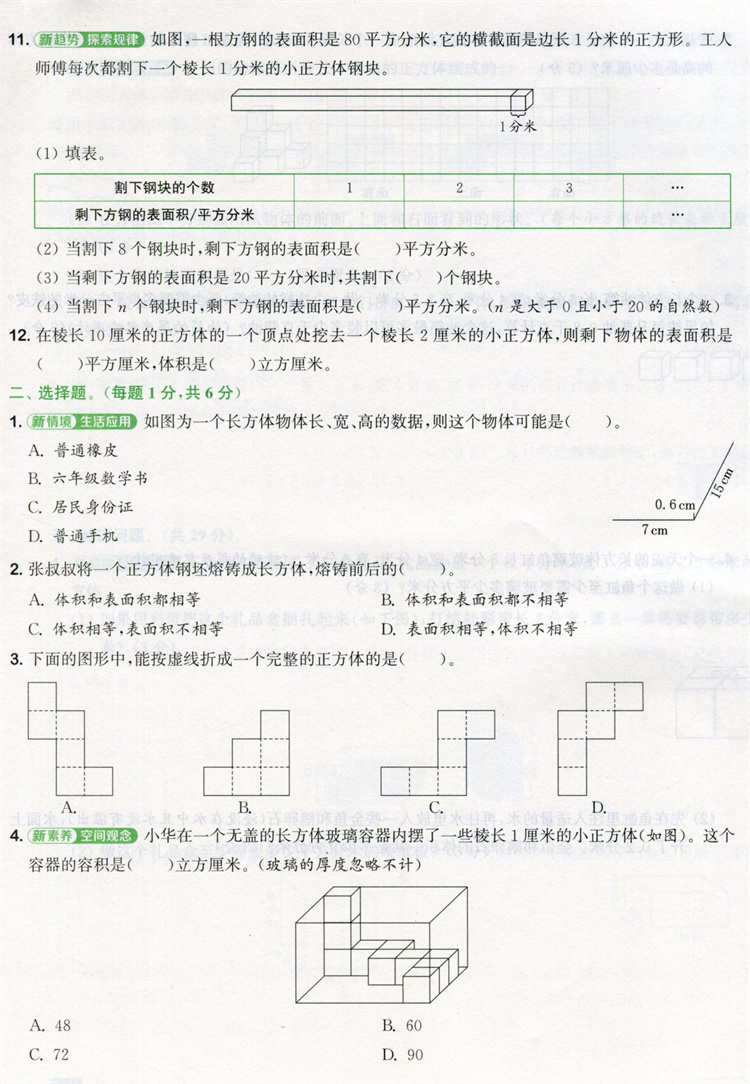 11. 新趋势 探索规律 如图,一根方钢的表面积是80平方分米,它的横截面是边长1分米的正方形。工人
师傅每次都割下一个棱长1分米的小正方体钢块。
1分米
(1) 填表。
割下钢块的个数 1 2 3 …
剩下方钢的表面积/平方分米 …
(2) 当割下8个钢块时,剩下方钢的表面积是( )平方分米。
(3) 当剩下方钢的表面积是20平方分米时,共割下( )个钢块。
(4) 当割下n个钢块时,剩下方钢的表面积是( )平方分米。(n是大于0且小于20的自然数)
12. 在棱长10厘米的正方体的一个顶点处挖去一个棱长2厘米的小正方体,则剩下物体的表面积是
( )平方厘米,体积是( )立方厘米。
二、选择题。(每题1分,共6分)
1. 新情境 生活应用 如图为一个长方体物体长、宽、高的数据,则这个物体可能是( )。
A. 普通橡皮
B. 六年级数学书
C. 居民身份证
D. 普通手机
0.6cm
15cm
7cm
2. 张叔叔将一个正方体钢坯熔铸成长方体,熔铸前后的( )。
A. 体积和表面积都相等 B. 体积和表面积都不相等
C. 体积相等,表面积不相等 D. 表面积相等,体积不相等
3. 下面的图形中,能按虚线折成一个完整的正方体的是( )。
A. B. C. D.
4. 新素养 空间观念 小华在一个无盖的长方体玻璃容器内摆了一些棱长1厘米的小正方体(如图)。这个
容器的容积是( )立方厘米。(玻璃的厚度忽略不计)
A. 48 B. 60
C. 72 D. 90